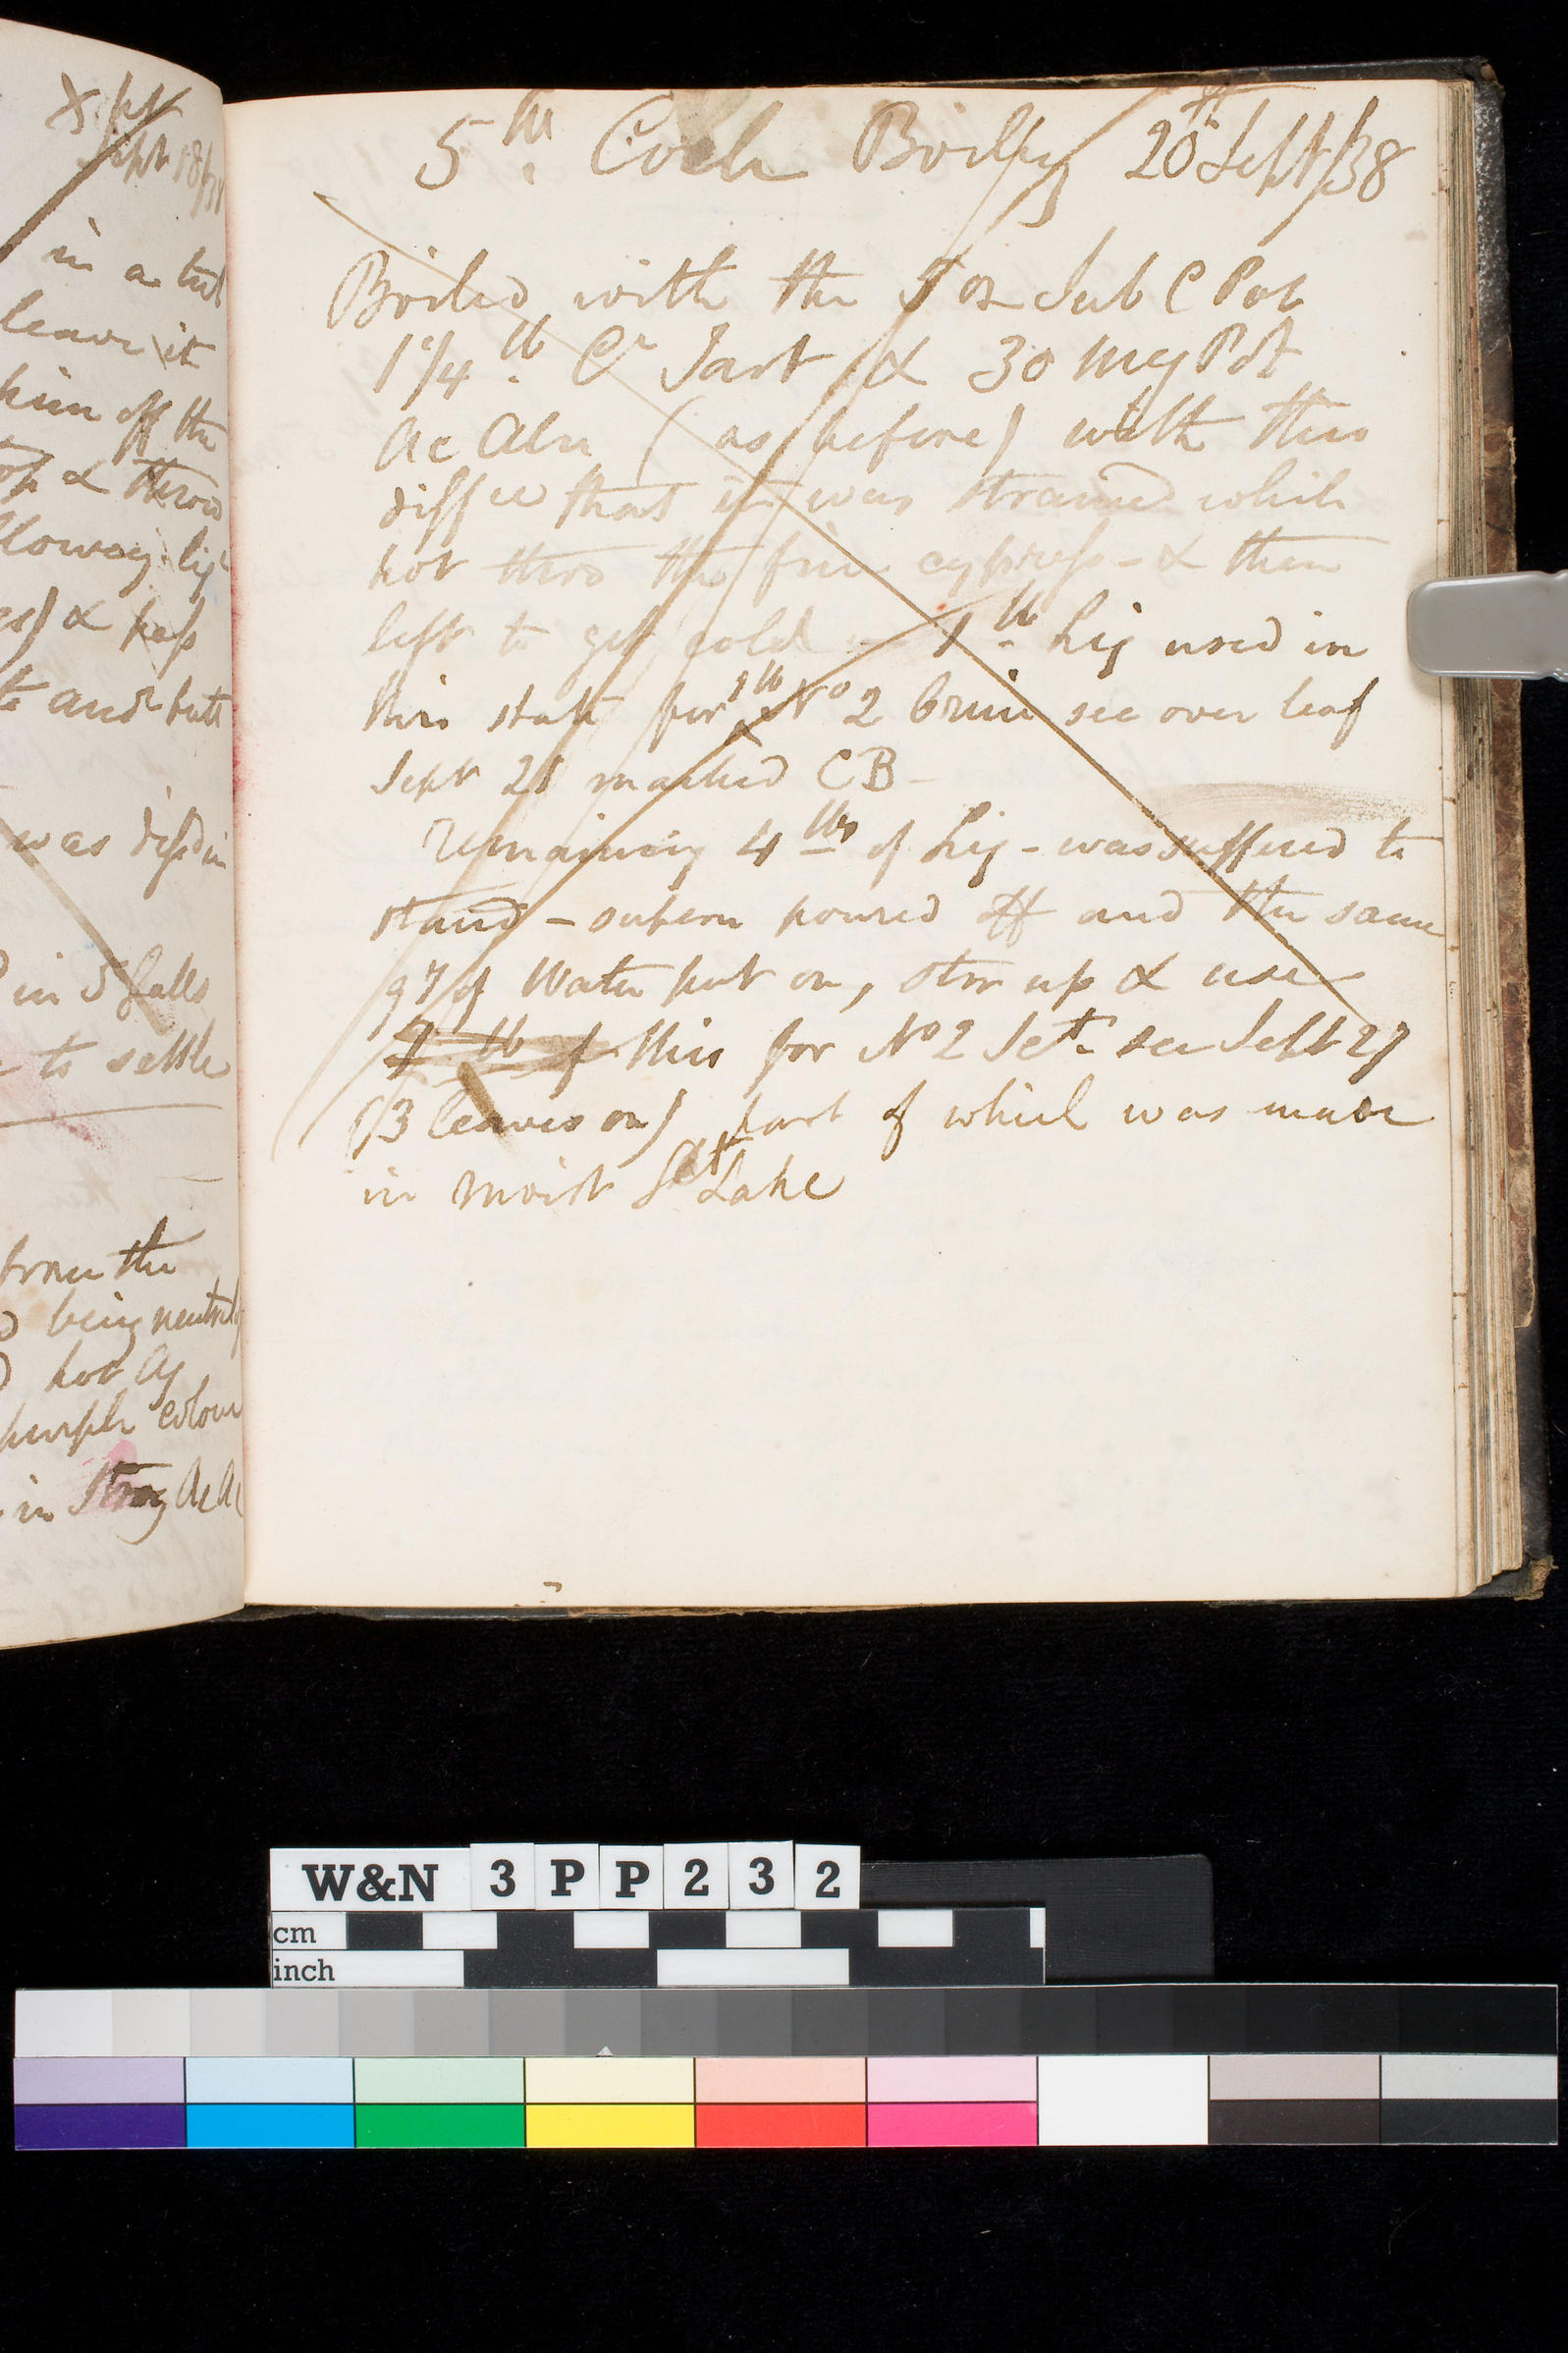 X pt
Sept 18/38
in a tub
leave it
him off the
top & throw
llowing liq
es) & pass
to and butt
was dissd in
in 5 Galls
to settle
from the
being neutral
hot Aq
purple colour
in Strong Ac Al
5th Coch Boilg 20th Sept/38
Boiled with the 5 oz Sub C Pot
1 1/4 lb Cr Tart & 30 meg Pot
Ac Alu (as before) with this
diffce that it was strained while
hot thro the fine cypress - & then
left to get cold - 1 lb Liq used in
this state for 1 lb No 2 Crim see over leaf
Sept 21 marked CB -
remaining 4 lbs of Liq - was suffered to
stand - supern poured off and the same
qy of Water put on, stir up & use
1 lb of this for No 2 Sct see Sept 27
(3 leaves on) part of which was made
in moist Sct Lake
W&N 3 P P 2 3 2
cm
inch